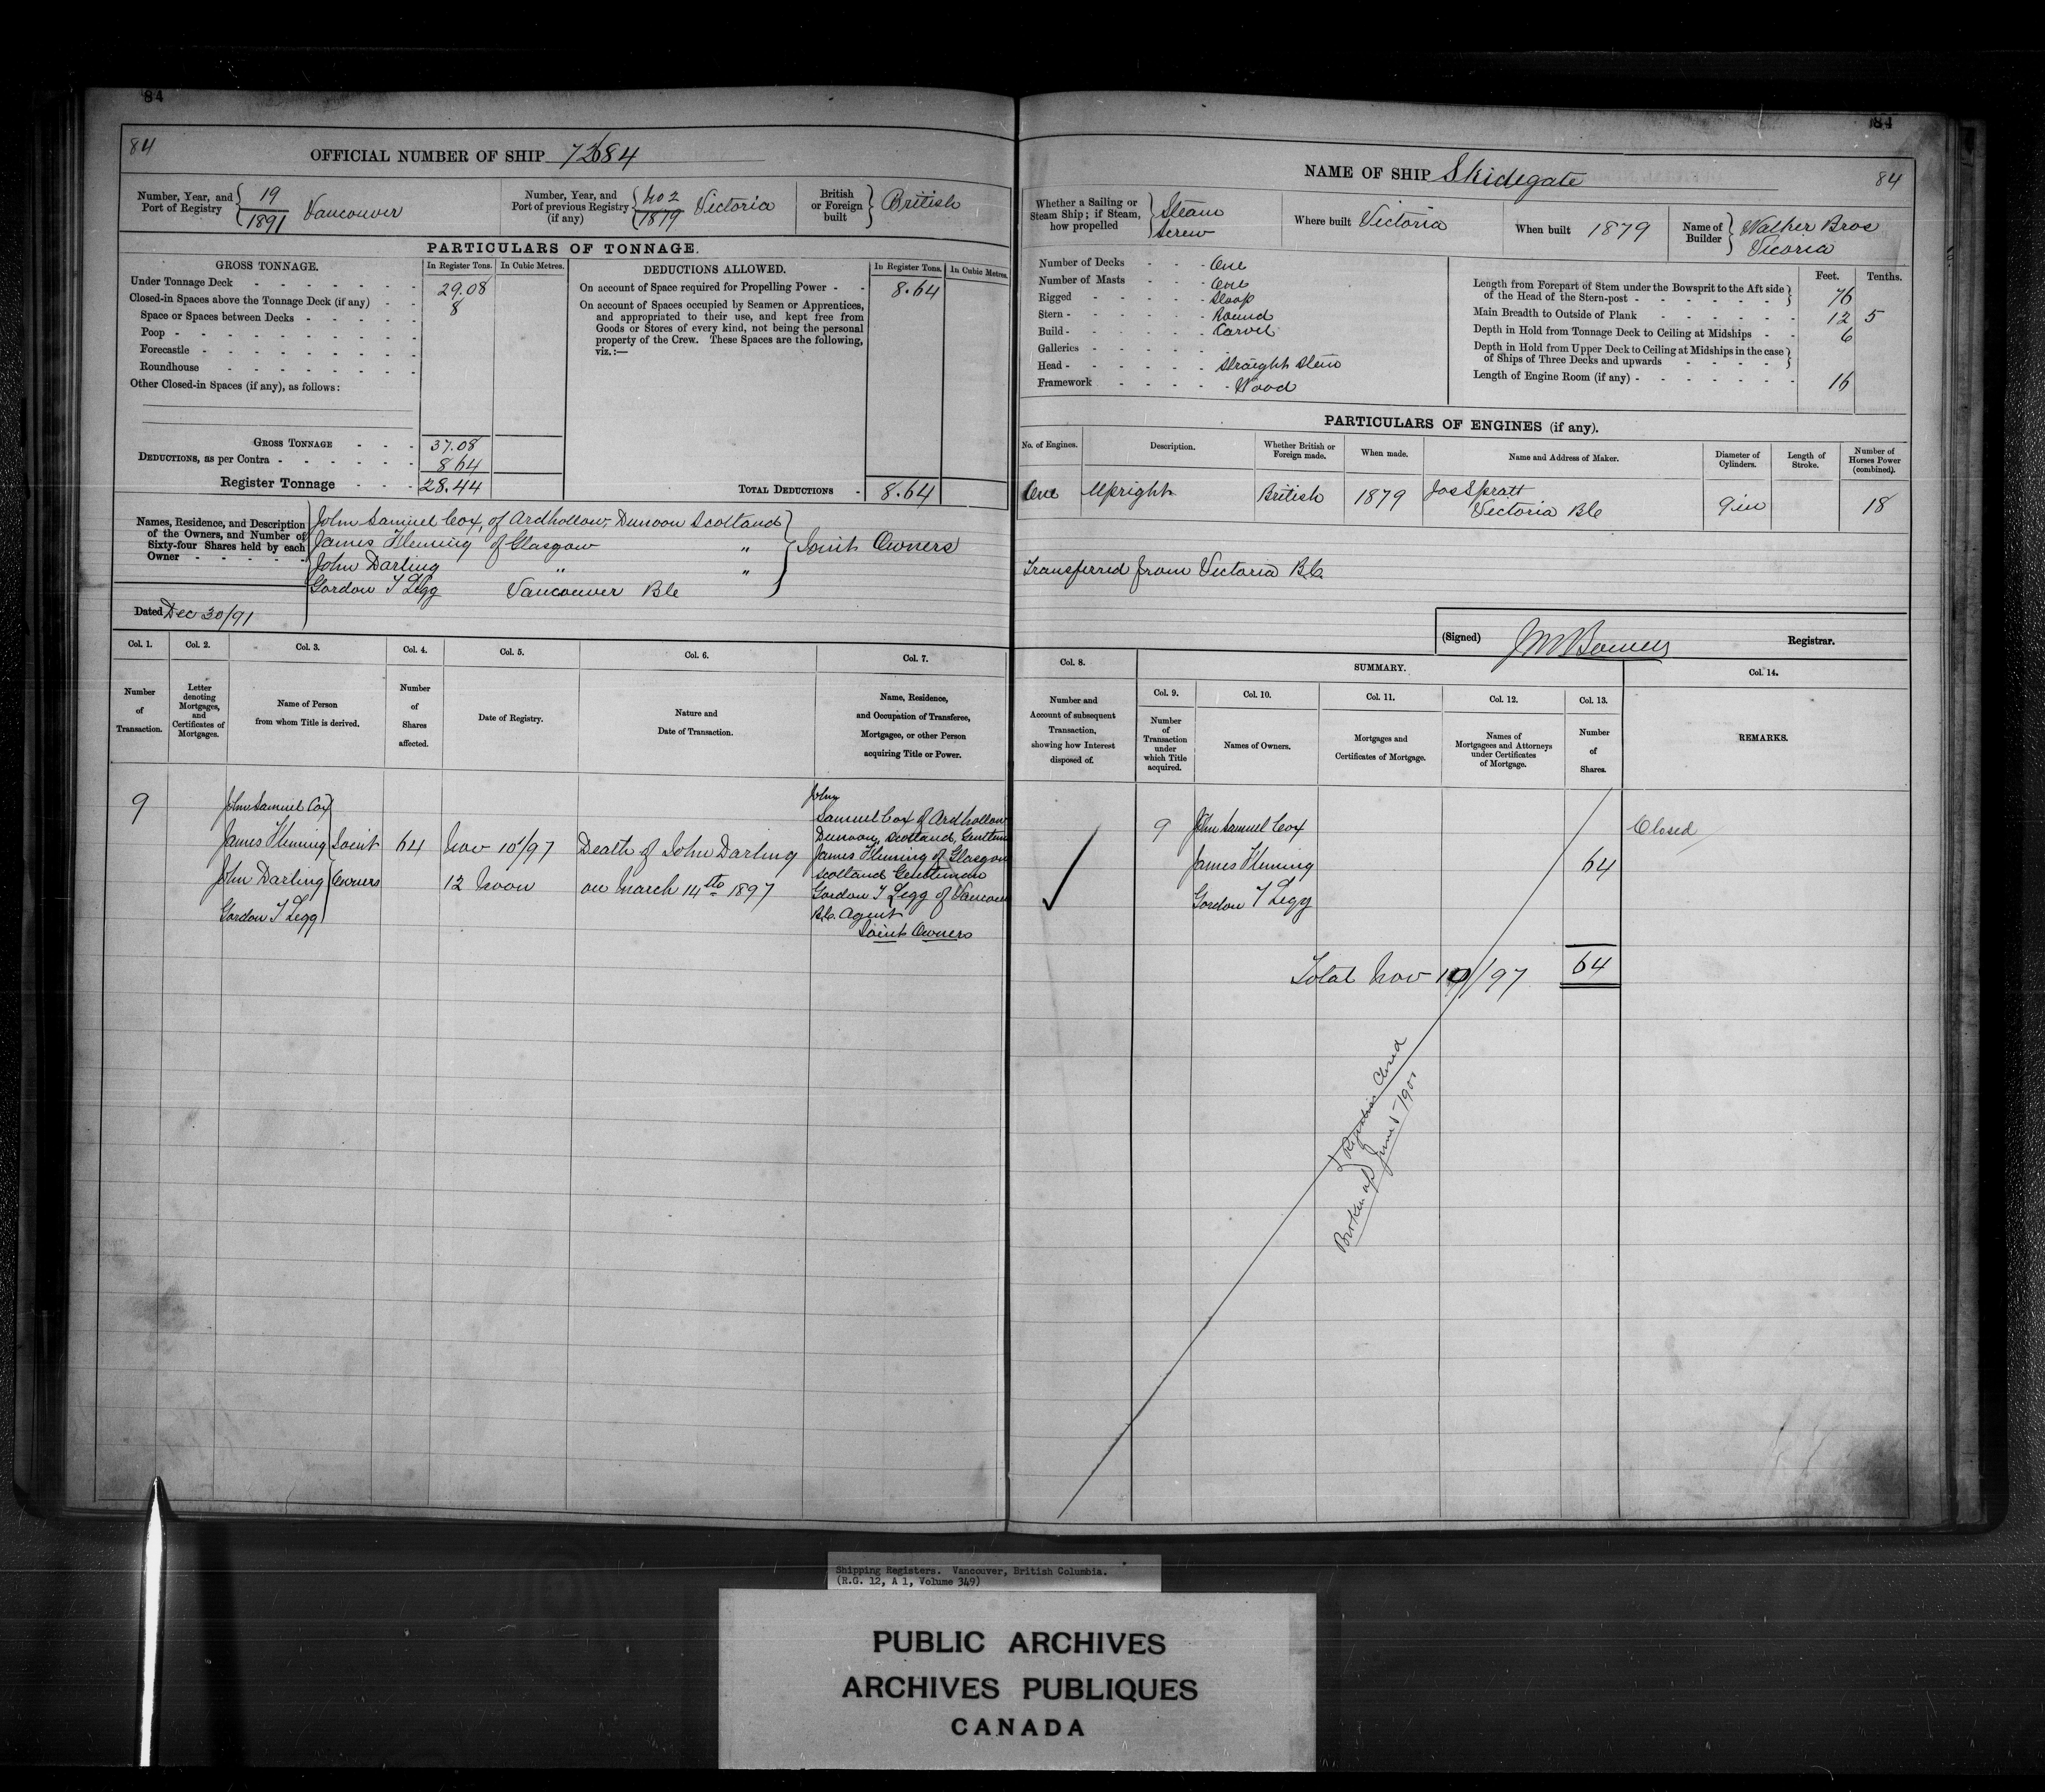 84
84
OFFICIAL NUMBER OF SHIP
Number, Year, and
Port of Registry
19
1891
Vancouver
Number, Year, and
Port of previous Registry
(if any)
No 2
1879
Victoria
British
or Foreign
built
British
PARTICULARS OF TONNAGE.
GROSS TONNAGE.
In Register Tons.
In Cubic Metres.
Under Tonnage Deck
29.08
Closed-in Spaces above the Tonnage Deck (if any)
8
Space or Spaces between Decks
Poop
Forecastle
Roundhouse
Other Closed-in Spaces (if any), as follows:
GROSS TONNAGE
37.08
DEDUCTIONS, as per Contra
8.64
Register Tonnage
28.44
DEDUCTIONS ALLOWED.
In Register Tons.
In Cubic Metres.
On account of Space required for Propelling Power
8.64
On account of Spaces occupied by Seamen or Apprentices,
and appropriated to their use, and kept free from
Goods or Stores of every kind, not being the personal
property of the Crew. These Spaces are the following,
viz.:—
TOTAL DEDUCTIONS
8.64
Names, Residence, and Description
of the Owners, and Number of
Sixty-four Shares held by each
Owner
John Samuel Cox, of Ardhollow, Dunoon Scotland
James Fleming of Glasgow "
John Darling " "
Gordon T Legg Vancouver BC
Joint Owners
Dated Dec 30/91
Col. 1.
Number
of
Transaction.
Col. 2.
Letter
denoting
Mortgages,
and
Certificates of
Mortgages.
Col. 3.
Name of Person
from whom Title is derived.
Col. 4.
Number
of
Shares
affected.
Col. 5.
Date of Registry.
Col. 6.
Nature and
Date of Transaction.
Col. 7.
Name, Residence,
and Occupation of Transferee,
Mortgagee, or other Person
acquiring Title or Power.
9
John Samuel Cox
James Fleming
John Darling
Gordon T Legg
Joint
Owners
64
Nov 10/97
12 Noon
Death of John Darling
on March 14th 1897
John
Samuel Cox of Ardhollow
Dunoon, Scotland, Gentleman
James Fleming of Glasgow
Scotland Gentleman
Gordon T Legg of Vancouver
B.C. Agent
Joint Owners
84
NAME OF SHIP Skidegate
84
Whether a Sailing or
Steam Ship; if Steam,
how propelled
Steam
Screw
Where built Victoria
When built 1879
Name of
Builder
Walker Bros
Vicoria
Number of Decks One
Number of Masts One
Rigged Sloop
Stern Round
Build Carvel
Galleries
Head Straight Stem
Framework Wood
Feet.
Tenths.
Length from Forepart of Stem under the Bowsprit to the Aft side
of the Head of the Stern-post
76
Main Breadth to Outside of Plank
12 5
Depth in Hold from Tonnage Deck to Ceiling at Midships
6
Depth in Hold from Upper Deck to Ceiling at Midships in the case
of Ships of Three Decks and upwards
Length of Engine Room (if any)
16
PARTICULARS OF ENGINES (if any).
No. of Engines.
Description.
Whether British or
Foreign made.
When made.
Name and Address of Maker.
Diameter of
Cylinders.
Length of
Stroke.
Number of
Horses Power
(combined).
One
Upright
British
1879
Jos Spratt
Victoria BC
9 in
18
Transferred from Victoria B.C.
(Signed)
Registrar.
Col. 8.
Number and
Account of subsequent
Transaction,
showing how Interest
disposed of.
SUMMARY.
Col. 9.
Number
of
Transaction
under
which Title
acquired.
Col. 10.
Names of Owners.
Col. 11.
Mortgages and
Certificates of Mortgage.
Col. 12.
Names of
Mortgagees and Attorneys
under Certificates
of Mortgage.
Col. 13.
Number
of
Shares.
Col. 14.
REMARKS.
9
John Samuel Cox
James Fleming
Gordon T Legg
64
Closed
Total Nov 10/97
64
Register Closed
Broken up June 5 1901
Shipping Registers. Vancouver, British Columbia.
(R.G. 12, A 1, Volume 349)
PUBLIC ARCHIVES
ARCHIVES PUBLIQUES
CANADA